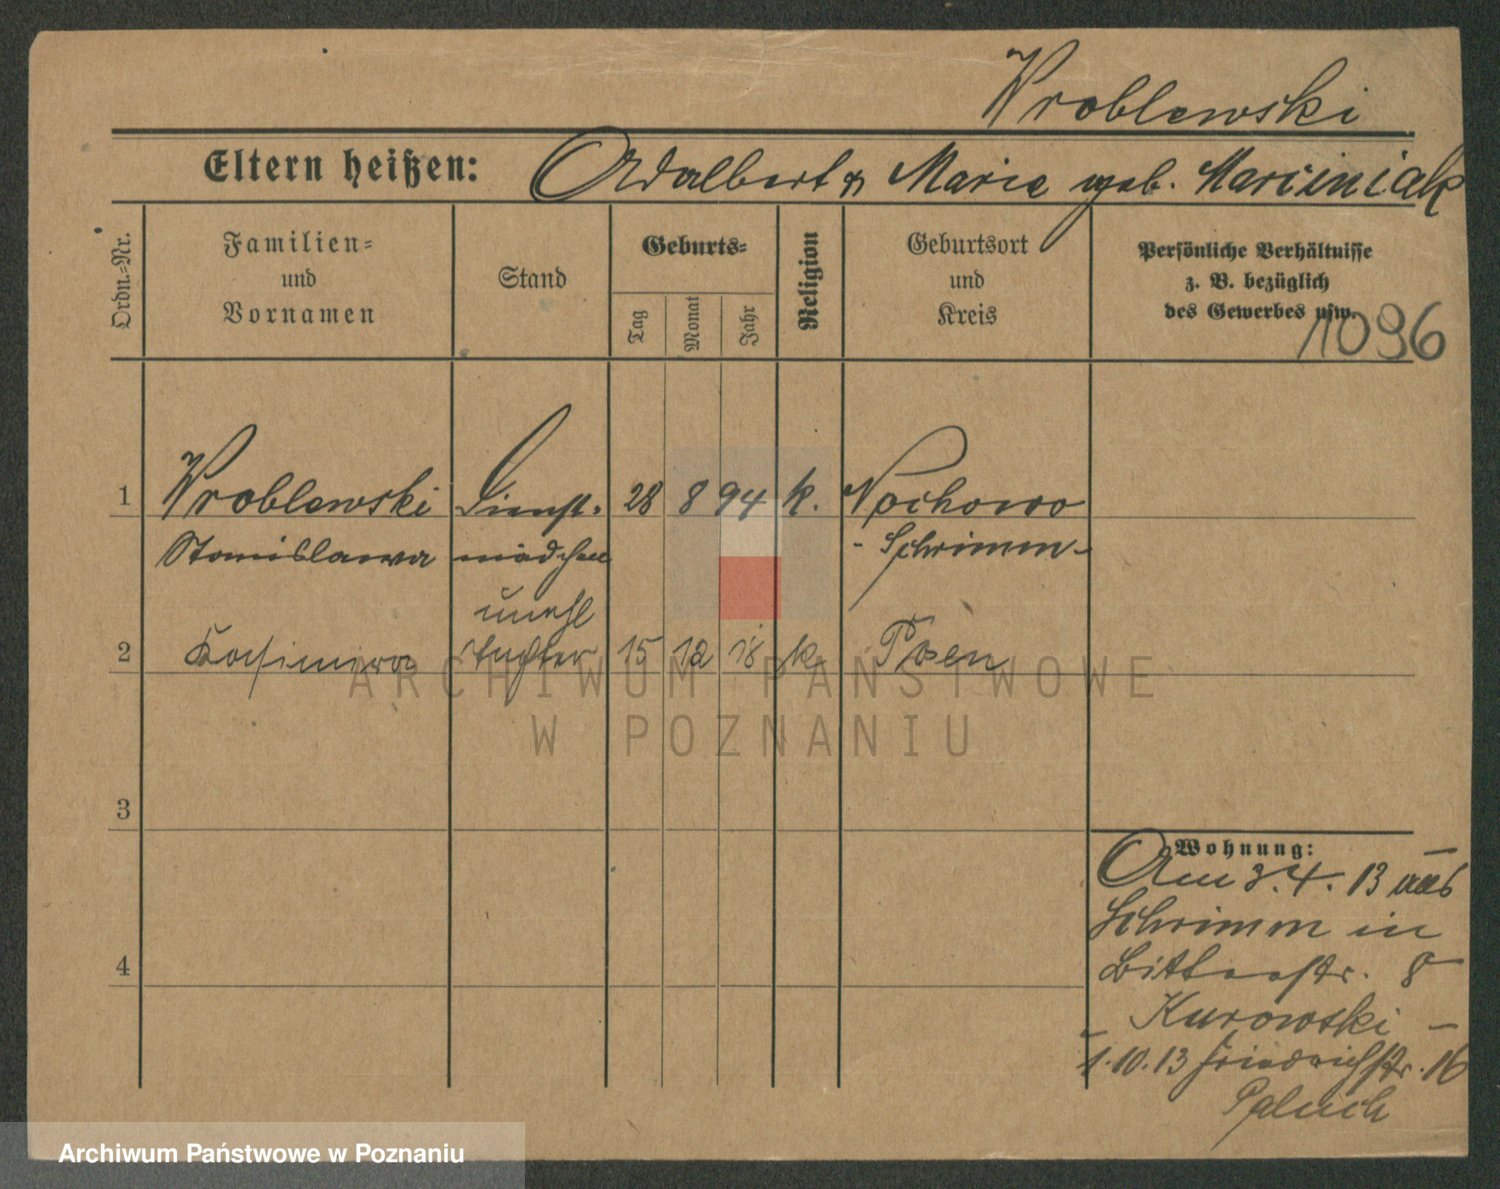 Wroblewski
Eltern heißen: Adalbert & Marie geb. Marciniak
Ordn.-Nr.
Familien-
und
Vornamen
Stand
Geburts-
Tag
Monat
Jahr
Religion
Geburtsort
und
Kreis
Persönliche Verhältnisse
z. B. bezüglich
des Gewerbes usw.
1096
1 Wroblewski Dienst- 28 8 94 k. Nochowo
Stanislawa mädchen - Schrimm -
unehl
2 Kasimira Tochter 15 12 18 k. Posen
3
4
Wohnung:
Am 3.4.13 aus
Schrimm in
Bitterstr. 8
- Kurowski -
1.10.13 Friedrichstr. 16
Paluch
ARCHIWUM PAŃSTWOWE
W POZNANIU
Archiwum Państwowe w Poznaniu